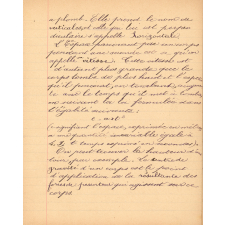 a plomb. Elle prend le nom de
verticale et celle qui lui est perpen
diculaire s'appelle horizontale.
L'espace parcouru par un corps
pendant une seconde est ce qu'on
appelle vitesse. Cette vitesse est
d'autant plus grande que le
corps tombe de plus haut et l'espace
qu'il parcourt, en tombant, augmen
te avec le temps qu'il met à tomber
on revient la loi formulée dans
l'égalité suivante:
e = at²
(e signifiant l'espace, exprimée en mètres
a une quantité invariable égale à
4,9 t temps exprimé en secondes)
On peut trouver la hauteur d'une
tour par exemple. Le centre de
gravité d'un corps est le point
d'application de la résultante des
forces qui agissent sur ce
corps